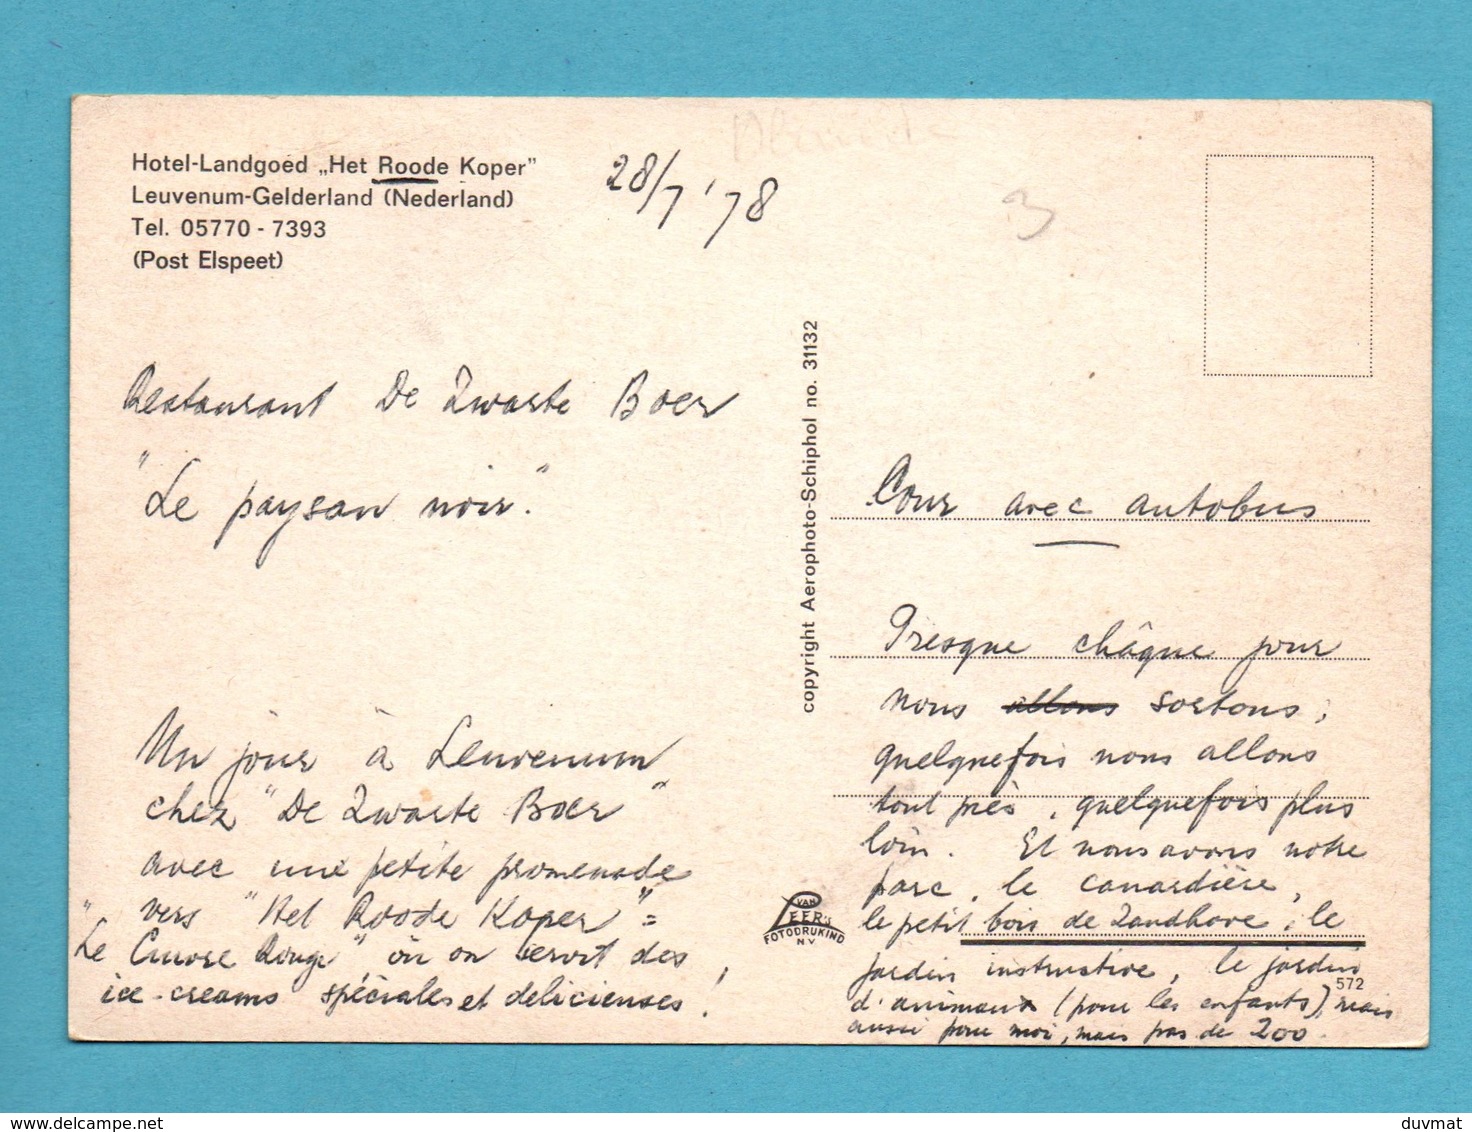 Hotel-Landgoed „Het Roode Koper"
Leuvenum-Gelderland (Nederland)
Tel. 05770 - 7393
(Post Elspeet)
28/7 '78
3
Restaurant De Zwarte Boer
"Le paysan noir."
Un jour à Leuvenum
chez "De Zwarte Boer"
avec une petite promenade
vers "Het Roode Koper" =
"Le Cuivre Rouge" où on servit des
ice-creams spéciales et delicieuses!
copyright Aerophoto-Schiphol no. 31132
VAN
LEER's
FOTODRUKIND
N.V
Cour avec autobus
Presque châque jour
nous allons sortons;
quelquefois nous allons
tout près, quelquefois plus
loin. Et nous avons notre
parc, le canardière,
le petit bois de Zandhove, le
jardin instructive, le jardin
572
d'animaux (pour les enfants), mais
aussi pour moi, mais pas de zoo.
duvmat